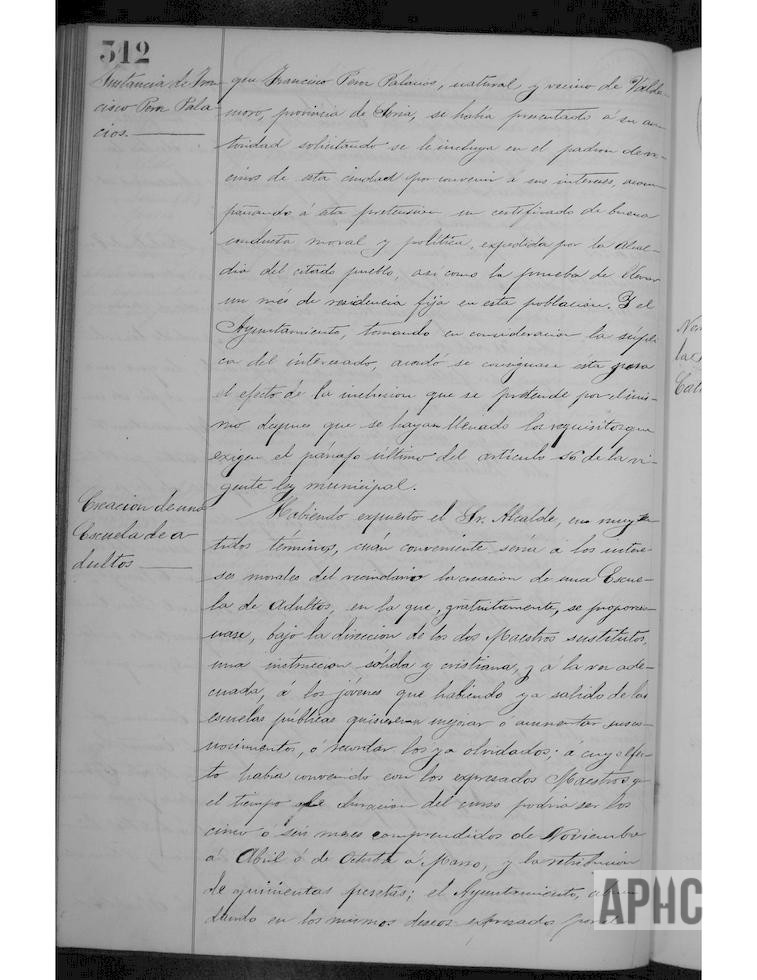 312
Instancia de Fran-
cisco Perez Pala-
cios.
que Francisco Perez Palacios, natural y vecino de Valde-
moro, provincia de Soria, se habia presentado á su au-
toridad solicitando se le incluya en el padron de ve-
cinos de esta ciudad por convenir á sus intereses, acom-
pañando á esta pretension un certificado de buena
conducta moral y politica, expedida por la Alcal-
dia del citado pueblo, asi como la prueba de llevar
un mes de residencia fija en esta poblacion. Y el
Ayuntamiento, tomando en consideracion la súpli-
ca del interesado, acordó se consignase esta para
el efecto de la inclusion que se pretende por el mis-
mo despues que se hayan llenado los requisitos que
exigen el párrafo último del artículo 16 de la vi-
gente ley municipal.
Creacion de una
Escuela de a-
dultos
Habiendo expuesto el Sr. Alcalde, en muy
términos, cuán conveniente seria á los intere-
ses morales del vecindario la creacion de una Escue-
la de Adultos, en la que, gratuitamente, se proporcio-
nase, bajo la direccion de los dos Maestros sustitutos,
una instruccion sólida y cristiana, y á la vez ade-
cuada, á los jóvenes que habiendo ya salido de las
escuelas públicas quisieran mejorar ó aumentar sus co-
nocimientos, ó recordar los ya olvidados; á cuyo efec-
to habia convenido con los expresados Maestros que
el tiempo de duracion del curso podria ser los
cinco ó seis meses comprendidos de Noviembre
á Abril ó de Octubre á Marzo, y la retribucion
de quinientas pesetas; el Ayuntamiento, abun-
dando en los mismos deseos expresados por el
APHC